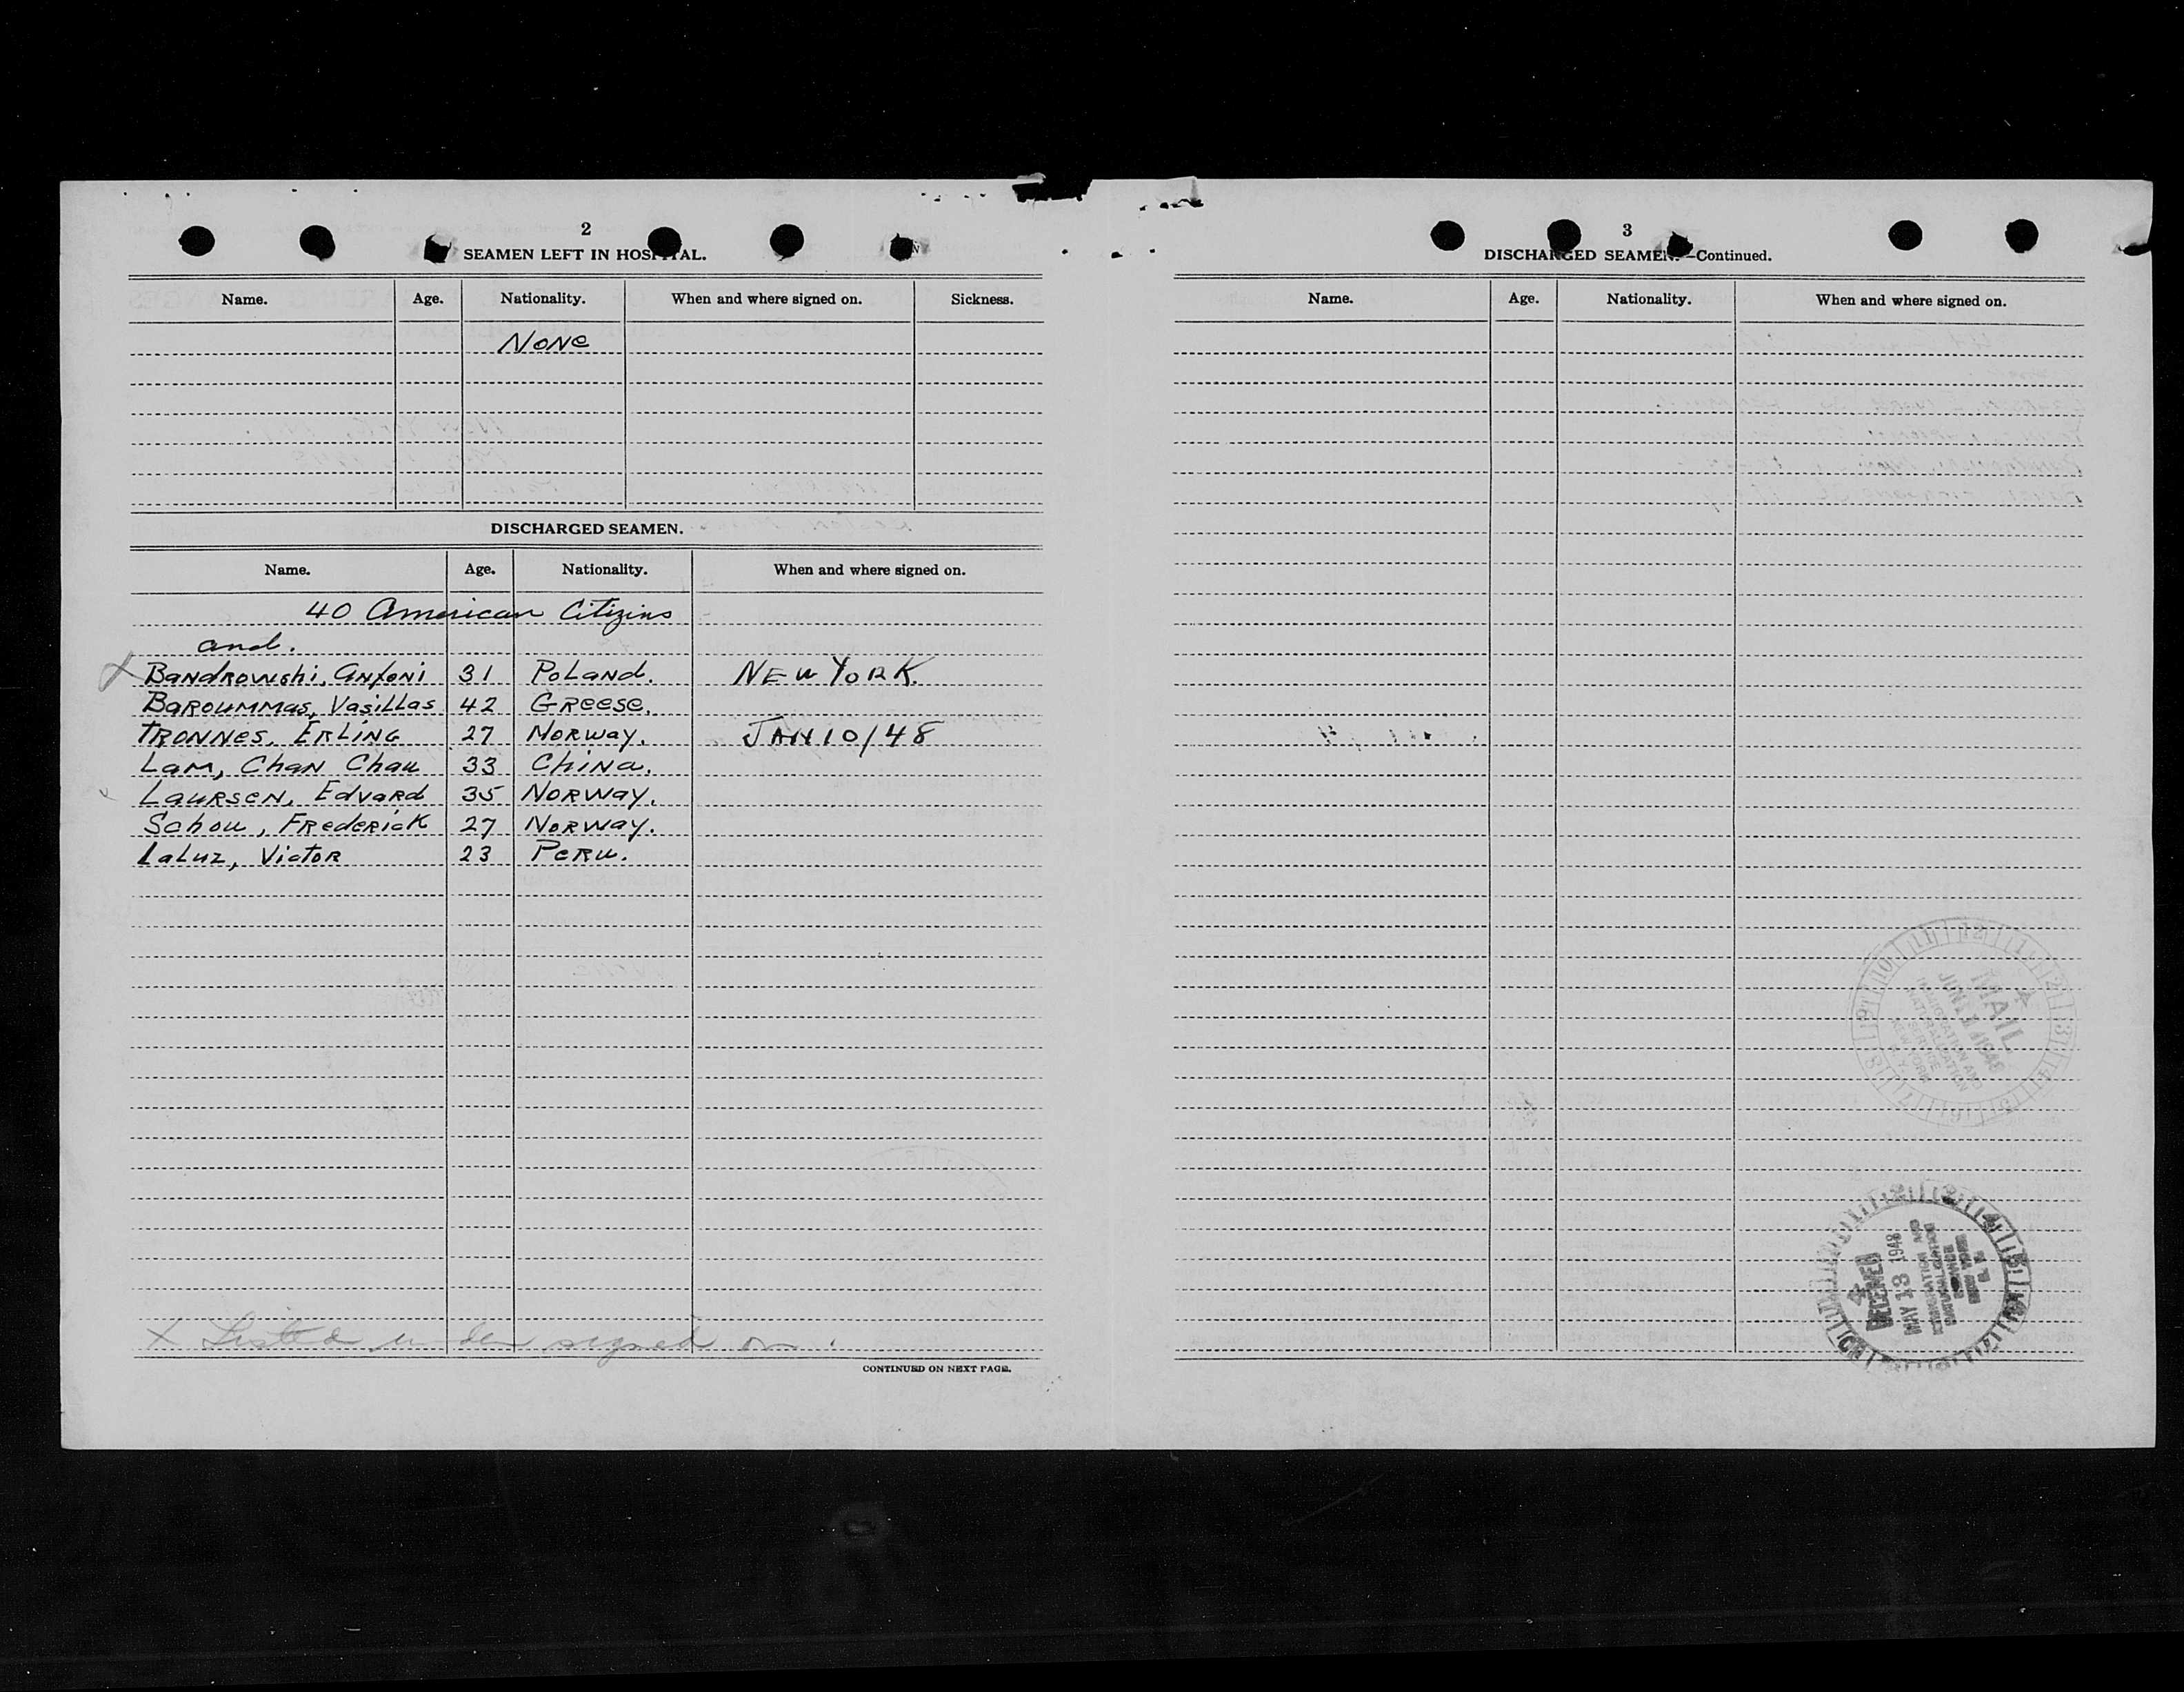 2
SEAMEN LEFT IN HOSPITAL.
Name. Age. Nationality. When and where signed on. Sickness.
None
DISCHARGED SEAMEN.
Name. Age. Nationality. When and where signed on.
40 American Citizins
and.
Bandrowshi, Antoni 31 Poland. NEW YORK.
Baroummas, Vasillas 42 Greese.
Tronnes, Erling 27 Norway. JAN 10/48
Lam, Chan Chau 33 China.
Laursen, Edvard 35 Norway.
Schou, Frederick 27 Norway.
LaLuz, Victor 23 Peru.
X Listed under signed on.
CONTINUED ON NEXT PAGE.
3
DISCHARGED SEAMEN.—Continued.
Name. Age. Nationality. When and where signed on.
MAIL
JUN 1948
IMMIGRATION AND
NATURALIZATION
SERVICE
NEW YORK
N. Y.
RECEIVED
MAY 13 1948
IMMIGRATION AND
NATURALIZATION
SERVICE
NEW YORK
N. Y.